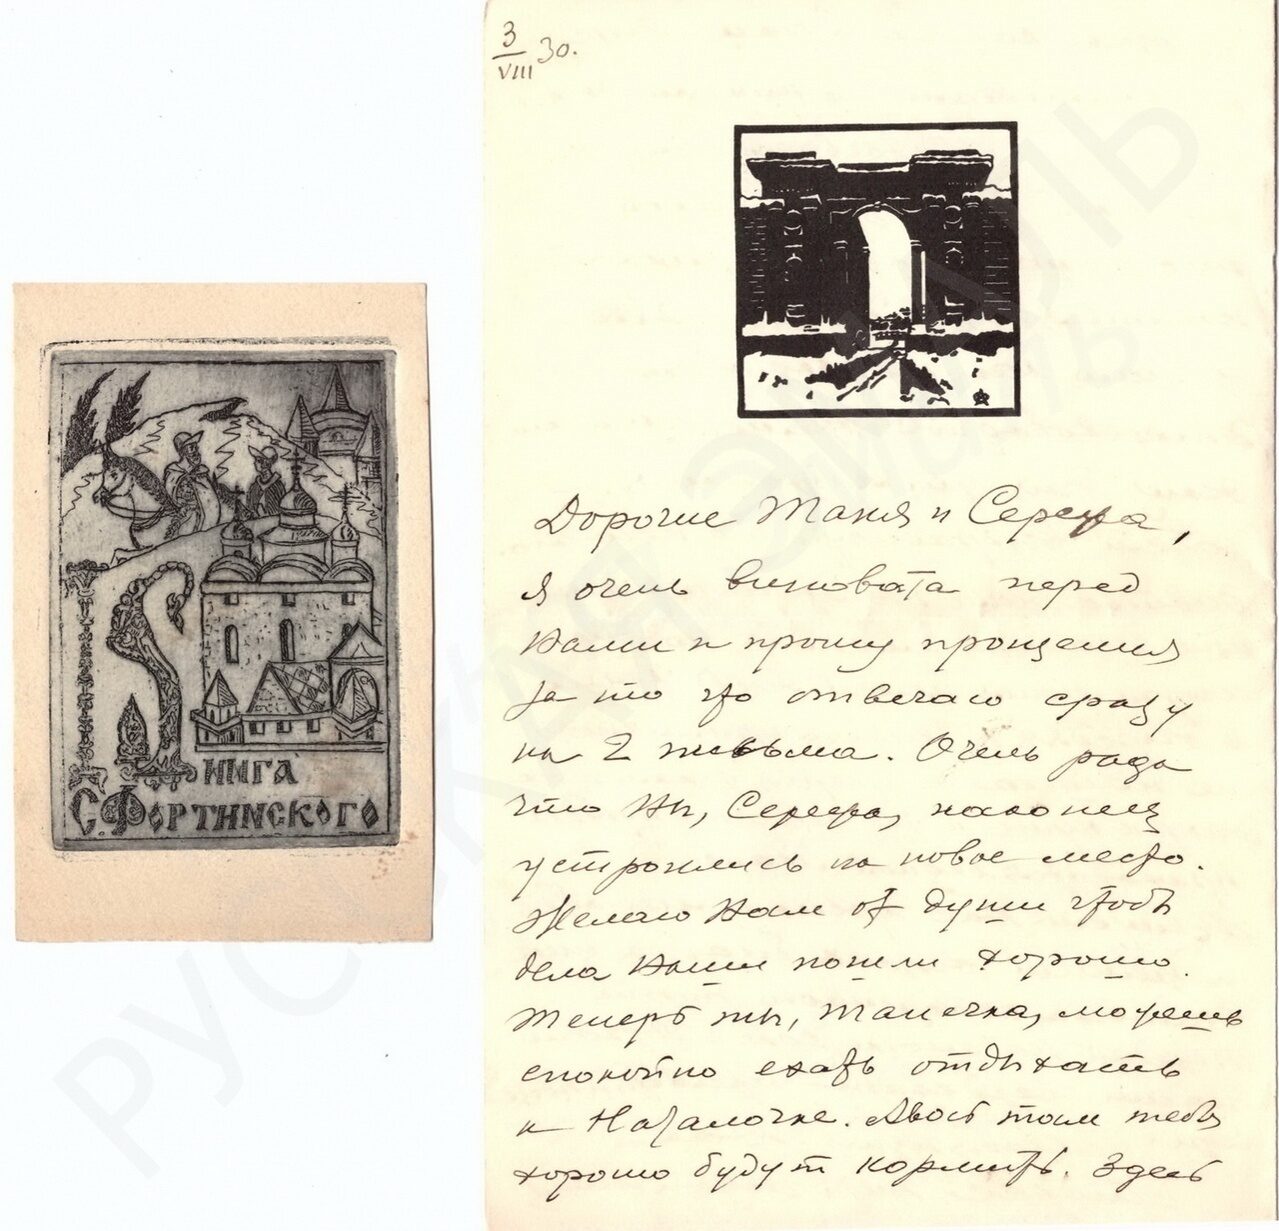 Книга
С. Фортинского
3/VIII 30.
Дорогие Таня и Сережа,
я очень виновата перед
Вами и прошу прощения
за то что отвечаю сразу
на 2 письма. Очень рада
что Вы, Сережа, наконец
устроились на новое место.
Желаю Вам от души чтобы
дела Ваши пошли хорошо.
Теперь ты, Танечка, можешь
спокойно ехать отдыхать
к Наталочке. Авось там тебя
хорошо будут кормить. Здесь
РУССКАЯ ЭМАЛЬ